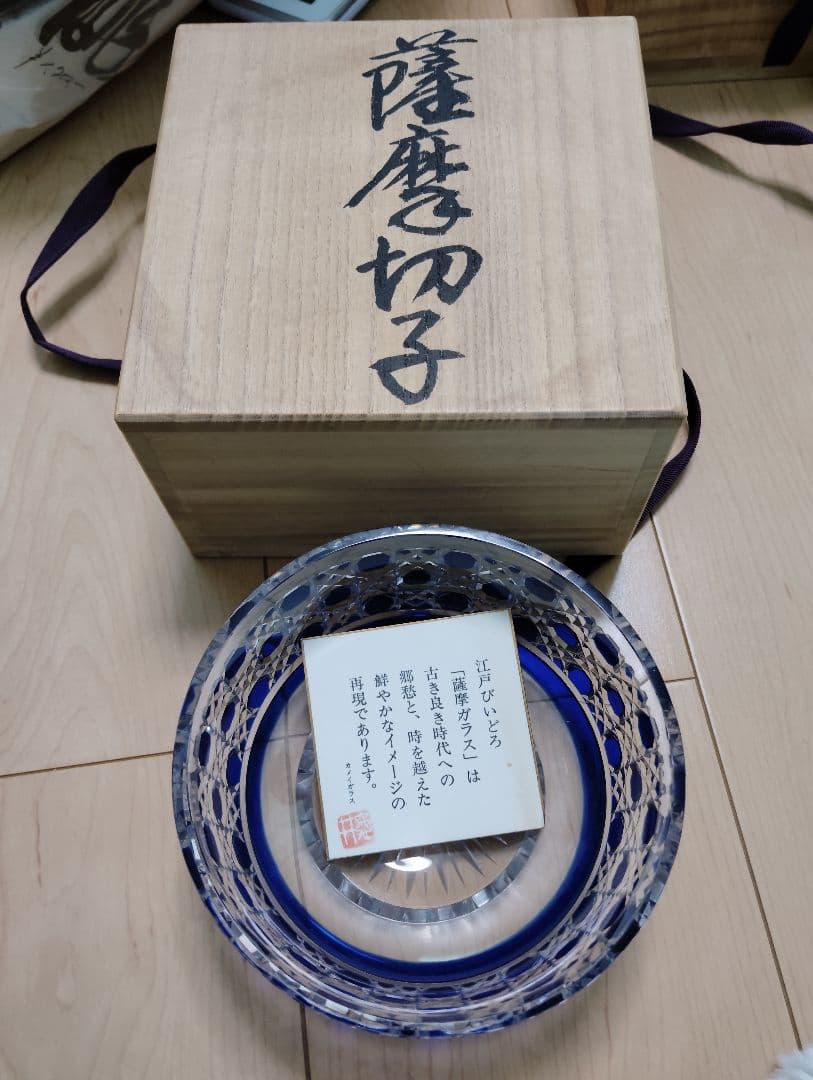 薩摩切子
江戸びいどろ
「薩摩ガラス」は
古き良き時代への
郷愁と、時を越えた
鮮やかなイメージの
再現であります。
カメイガラス